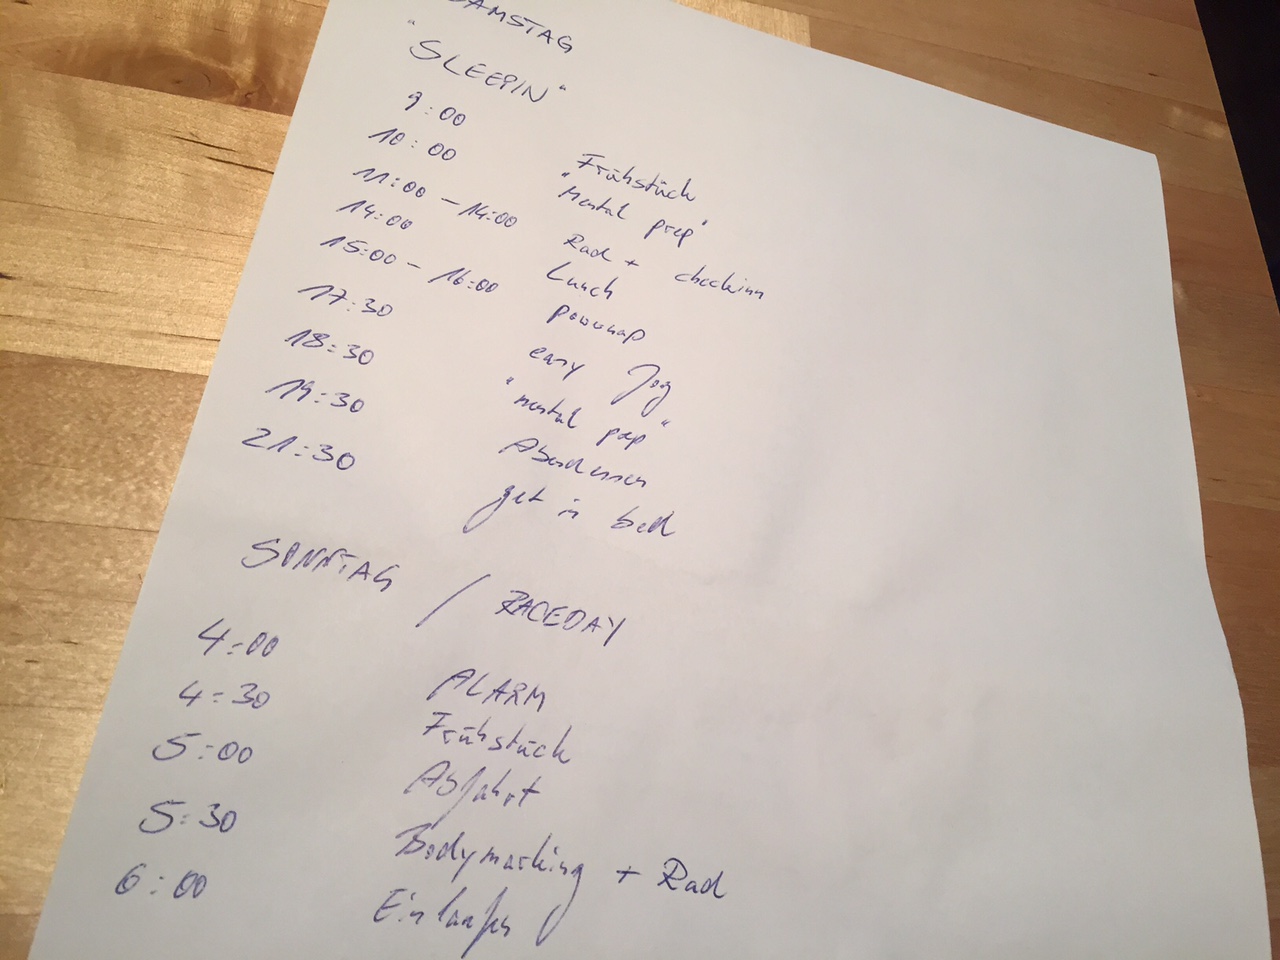 SAMSTAG
"SLEEPIN"
9:00 Frühstück
10:00 "Mental prep"
11:00 - 14:00 Rad + checkinn
14:00 Lunch
15:00 - 16:00 pownap
17:30 easy Jog
18:30 "mental prep"
19:30 Abendessen
21:30 get in bed
SONNTAG / RACEDAY
4:00 ALARM
4:30 Frühstück
5:00 Abfahrt
5:30 Bodymarking + Rad
6:00 Einlaufen